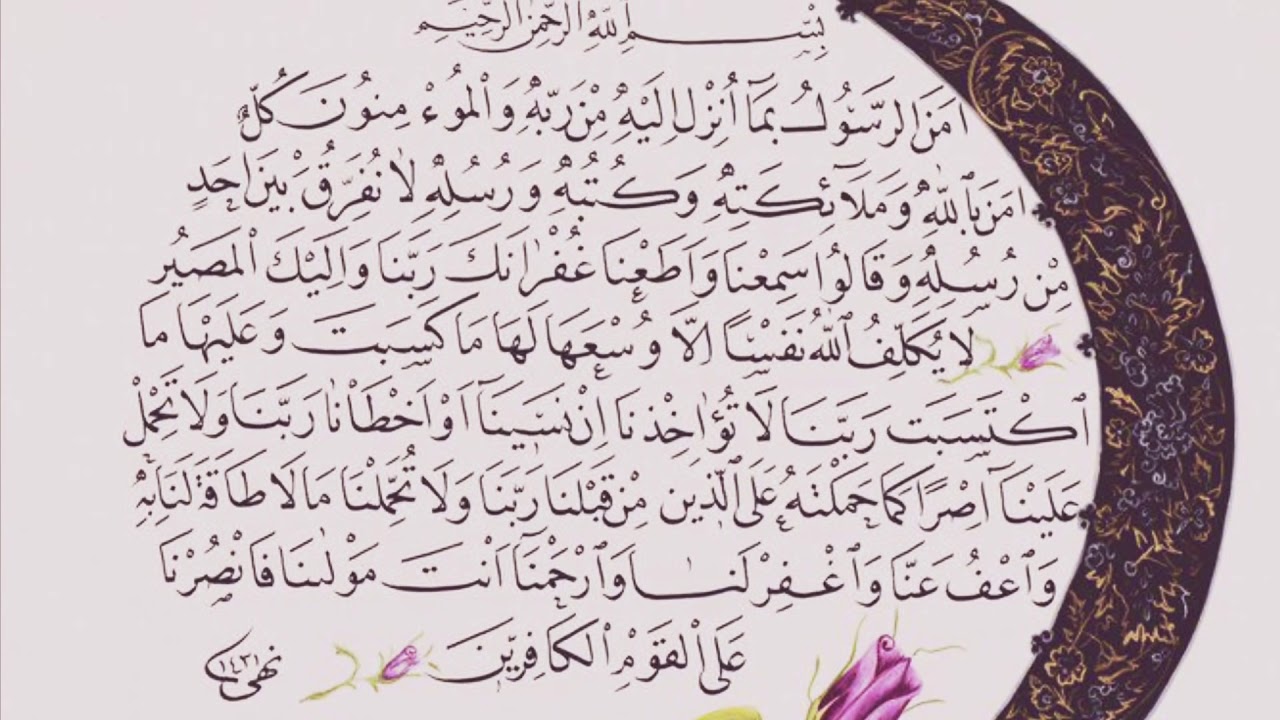 بِسْمِ اللهِ الرَّحْمٰنِ الرَّحِيْمِ
اٰمَنَ الرَّسُوْلُ بِمَآ اُنْزِلَ اِلَيْهِ مِنْ رَبِّهٖ وَالْمُوءْمِنُونَ كُلٌّ
اٰمَنَ بِاللّٰهِ وَمَلَآئِكَتِهٖ وَكُتُبِهٖ وَرُسُلِهٖ لَا نُفَرِّقُ بَيْنَ اَحَدٍ
مِنْ رُسُلِهٖ وَقَالُوا سَمِعْنَا وَاَطَعْنَا غُفْرَانَكَ رَبَّنَا وَاِلَيْكَ الْمَصِيْرُ
لَا يُكَلِّفُ اللّٰهُ نَفْسًا اِلَّا وُسْعَهَا لَهَا مَا كَسَبَتْ وَعَلَيْهَا مَا
اكْتَسَبَتْ رَبَّنَا لَا تُؤَاخِذْنَا اِنْ نَسِيْنَآ اَوْ اَخْطَاْنَا رَبَّنَا وَلَا تَحْمِلْ
عَلَيْنَآ اِصْرًا كَمَا حَمَلْتَهُ عَلَى الَّذِيْنَ مِنْ قَبْلِنَا رَبَّنَا وَلَا تُحَمِّلْنَا مَا لَا طَاقَةَ لَنَا بِهٖ
وَاعْفُ عَنَّا وَاغْفِرْ لَنَا وَارْحَمْنَآ اَنْتَ مَوْلٰىنَا فَانْصُرْنَا
عَلَى الْقَوْمِ الْكَافِرِيْنَ
نهى ١٤٣١